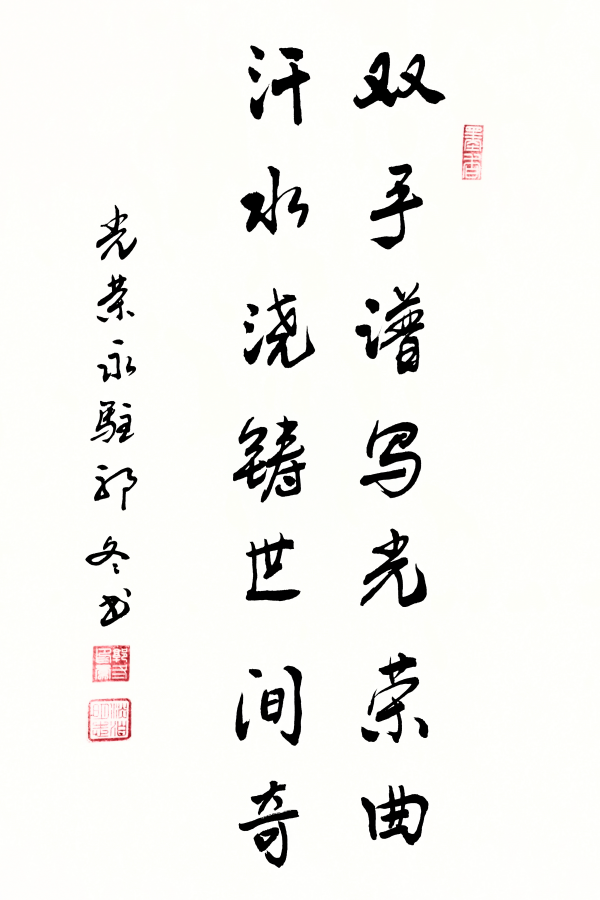 墨香
双手谱写光荣曲
汗水浇铸世间奇
光荣永駐郭冬书